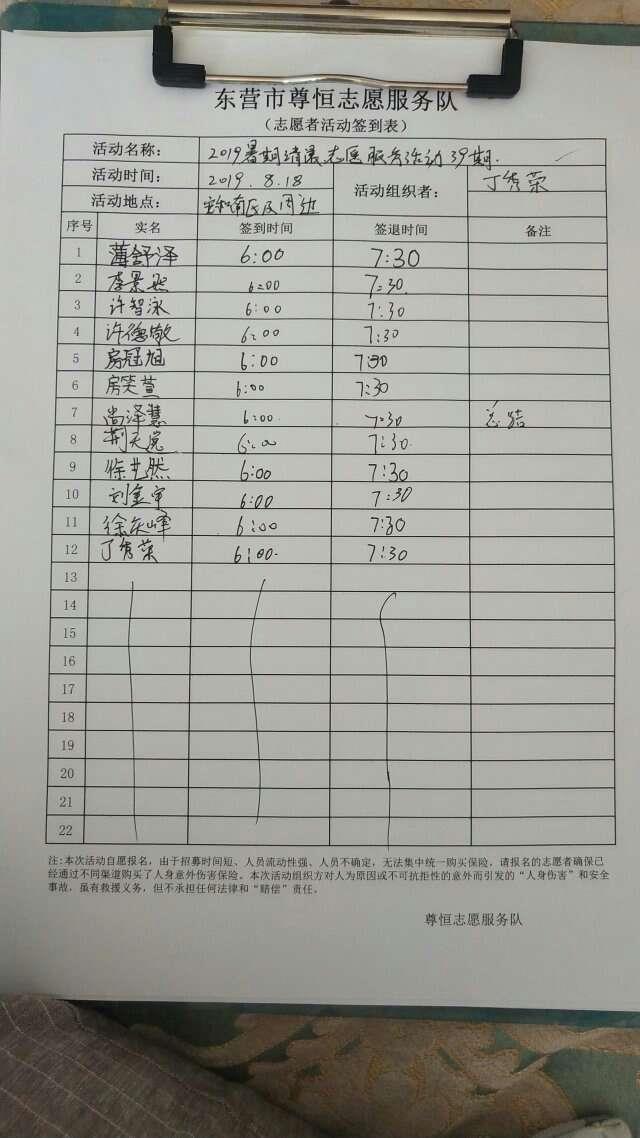 东营市尊恒志愿服务队
（志愿者活动签到表）
活动名称： 2019暑期清晨志愿服务活动39期.
活动时间： 2019.8.18 活动组织者： 丁秀荣
活动地点： 南区及周边
序号 实名 签到时间 签退时间 备注
1 薄舒泽 6:00 7:30
2 李景熙 6:00 7:30
3 许智泳 6:00 7:30
4 许德敬 6:00 7:30
5 房冠旭 6:00 7:30
6 房笑萱 6:00 7:30
7 尚泽慧 6:00 7:30 总结
8 荆天 6:00 7:30
9 徐艺然 6:00 7:30
10 刘金 6:00 7:30
11 徐庆峰 6:00 7:30
12 丁秀荣 6:00 7:30
13
14
15
16
17
18
19
20
21
22
注:本次活动自愿报名，由于招募时间短、人员流动性强、人员不确定，无法集中统一购买保险，请报名的志愿者确保已
经通过不同渠道购买了人身意外伤害保险。本次活动组织方对人为原因或不可抗拒性的意外而引发的“人身伤害”和安全
事故，虽有救援义务，但不承担任何法律和“赔偿”责任。
尊恒志愿服务队